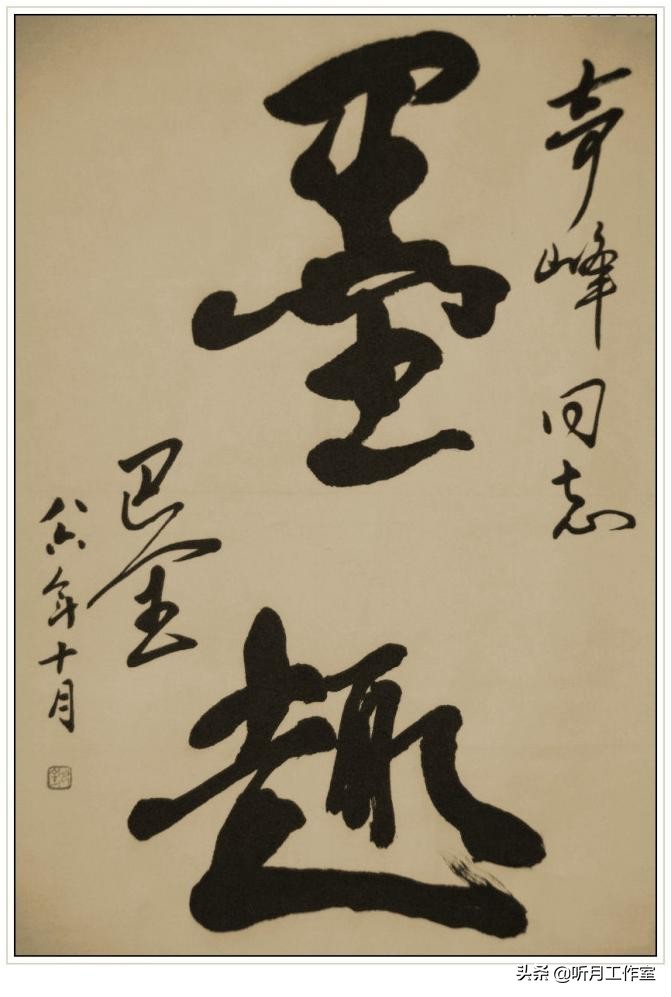 奇峰同志
墨趣
巴金
八六年十月
头条 @听月工作室